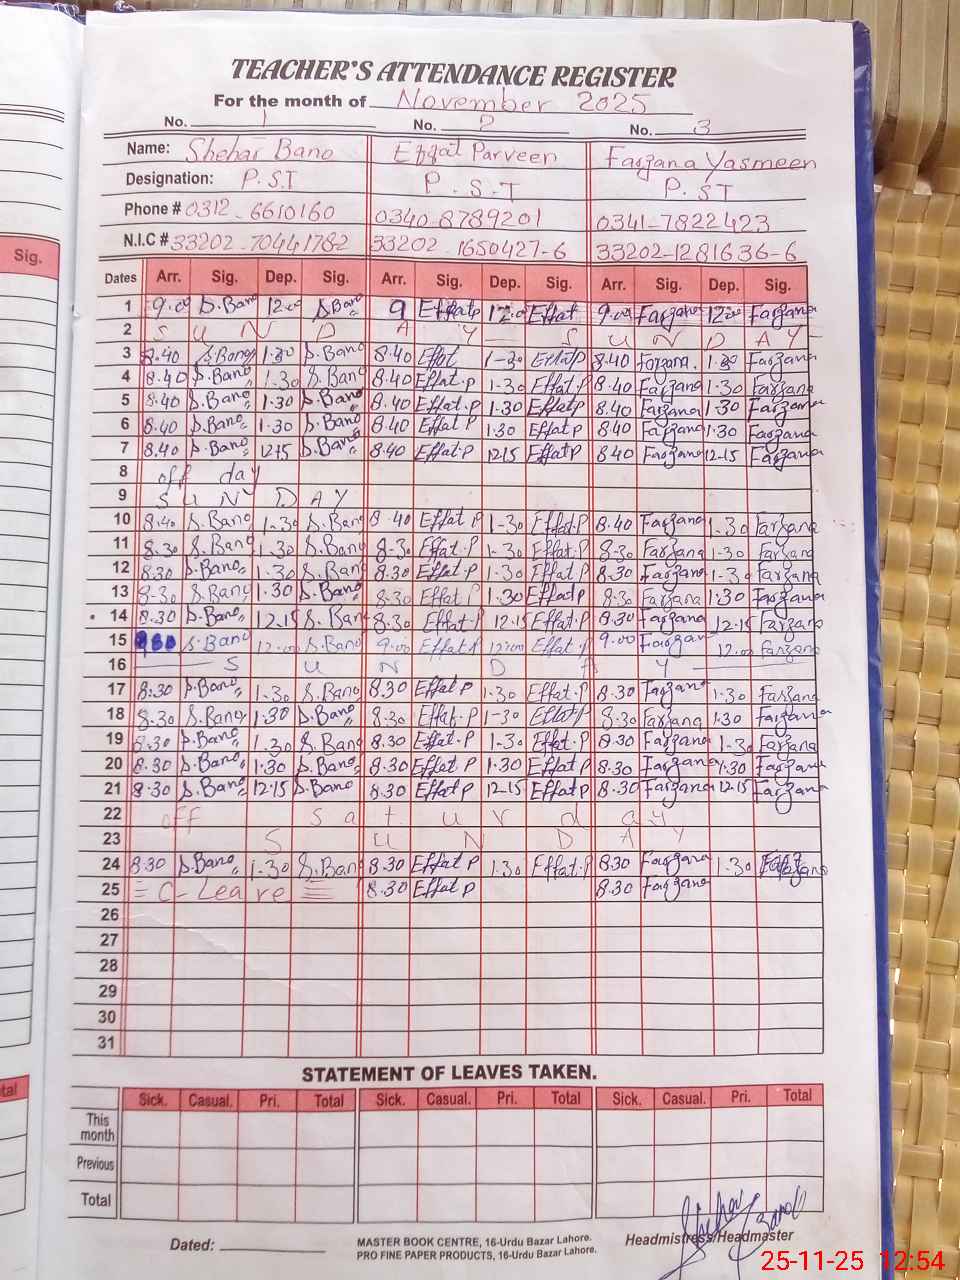 TEACHER'S ATTENDANCE REGISTER
For the month of November 2025
No. 1 No. 2 No. 3
Name: Shehar Bano Effat Parveen Farzana Yasmeen
Designation: P.S.T P.S.T P.ST
Phone # 0312-6610160 0340-8789201 0341-7822423
N.I.C # 33202-70441782 33202-1650427-6 33202-1281636-6
Sig.
Dates Arr. Sig. Dep. Sig. Arr. Sig. Dep. Sig. Arr. Sig. Dep. Sig.
1 9.00 S.Bano 12.00 S.Bano 9 Effatp 12.00 Effat 9.00 Farzana 12.00 Farzana
2 SUNDAY SUNDAY
3 8.40 S.Bano 1.30 S.Bano 8.40 Effat 1-30 EffatP 8.40 Farzana. 1.30 Farzana
4 8.40 S.Bano 1.30 S.Bano 8.40 Effat.P 1-30 Effat.P 8.40 Farzana 1.30 Farzana
5 8.40 S.Bano 1.30 S.Bano 8.40 Effat.P 1.30 EffatP 8.40 Farzana 1.30 Farzana
6 8.40 S.Bano 1.30 S.Bano 8.40 Effat P 1.30 Effat P 8.40 Farzana 1.30 Farzana
7 8.40 S.Bano 12.15 S.Bano 8.40 Effat.P 12.15 EffatP 8.40 Farzana 12-15 Farzana
8 off day
9 SUNDAY
10 8.40 S.Bano 1-30 S.Bano 8.40 Effat P 1-30 Effat.P 8.40 Farzana 1.30 Farzana
11 8.30 S.Bano 1.30 S.Bano 8-30 Effat.P 1-30 Effat.P 8-30 Farzana 1-30 Farzana
12 8.30 S.Bano 1.30 S.Bano 8.30 Effat P 1-30 Effat P 8.30 Farzana 1-30 Farzana
13 8-30 S.Bano 1.30 S.Bano 8:30 Effat P 1.30 EffatP 8:30 Farzana 1:30 Farzana
14 8.30 S.Bano 12.15 S.Bano 8.30 Effat.P 12.15 Effat.P 8.30 Farzana 12.15 Farzana
15 S.Bano 12.00 S.Bano 9.00 Effat P 12:00 Effat P 9.00 Farzana 12.00 Farzana
16 SUNDAY
17 8:30 S.Bano 1-30 S.Bano 8.30 Effat P 1.30 Effat.P 8.30 Farzana 1.30 Farzana
18 8.30 S.Bano 1.30 S.Bano 8.30 Effat.P 1-30 EffatP 8.30 Farzana 1.30 Farzana
19 8.30 S.Bano 1.30 S.Bano 8.30 Effat.P 1-30 Effat.P 8.30 Farzana 1-30 Farzana
20 8.30 S.Bano 1.30 S.Bano 8.30 Effat P 1.30 Effat P 8.30 Farzana 1.30 Farzana
21 8.30 S.Bano 12.15 S.Bano 8.30 Effat P 12-15 Effat P 8.30 Farzana 12.15 Farzana
22 off Saturday
23 SUNDAY
24 8.30 S.Bano 1-30 S.Bano 8.30 Effat P 1.30 Effat.P 8.30 Farzana 1.30 Farzana
25 C-Leave 8.30 Effat P 8.30 Farzana
26
27
28
29
30
31
STATEMENT OF LEAVES TAKEN.
Sick. Casual. Pri. Total Sick. Casual. Pri. Total Sick. Casual. Pri. Total
This month
Previous
Total
Shehar Bano
Dated: MASTER BOOK CENTRE, 16-Urdu Bazar Lahore. Headmistress/Headmaster
PRO FINE PAPER PRODUCTS, 16-Urdu Bazar Lahore.
25-11-25 12:54